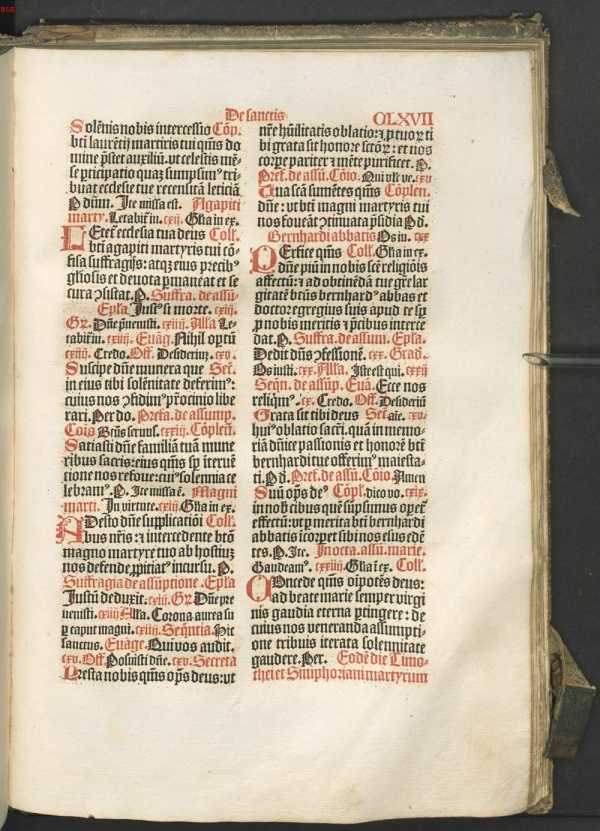 De sanctis
CLXVII
Solēnis nobis intercessio Cōp.
bt̄i laurētij martiris tui qm̄s do
mine p̄stet auxiliū. vt celestis mē-
se p̄ticipatio quaꝫ sumpsimꝰ tri-
buat ecclesie tue recensitā leticiā
P dnm̄. Ite missa est. Agapiti
marty. Letabit̄ in. cxij. Gl̄ia in ex.
Letet̄ ecclesia tua deus Coll.
bt̄i agapiti martyris tui cō
fisa suffragijs: atqꝫ eius p̄cibꝰ
gl̄iosis et deuota p̄maneat et se
cura ꝯsistat. P. Suffra. de assū-
Ep̄la Justꝰ si morte. cxiij.
Gr̄. Dn̄e p̄uenisti. cxiiij. All̄a Le-
tabit̄ in. cxiiij. Euāg. Nihil optū
cxiiij. Credo. Off. Desideriuꝫ. cxv.
Suscipe dn̄e munera que Sec̄.
in eius tibi solēnitate deferimꝰ:
cuius nos ꝯfidimꝰ pr̄ocinio libe
rari. Per do. Prefa. de assump.
Coīo Bt̄us seruus. cxxiij. Cōplen̄.
Satiasti dn̄e familiā tuā mune
ribus sacris: eiꝰ qm̄s sp̄ iteruē
tione nos refoue: cuiꝰ solennia ce
lebramꝰ. P. Ite missa ē. Magni
marti. In virtute. cxij. Gl̄ia in ex.
Adesto dn̄e supplicatiōi Coll.
bus nr̄is: ⁊ intercedente bt̄o
magno martyre tuo ab hostiuꝫ
nos defende ꝓpitiatꝰ incursu. P.
Suffragia de assūptione. Ep̄la
Justū deduxit. cxiij. Gr̄. Dn̄e pre
uenisti. cxiiij All̄a. Corona aurea su
ꝑ caput magni. cxiiij. Seqn̄tia. Hic
sanctus. Euāge. Qui vos audit.
cxv. Off. Posuisti dn̄e. cxv. Secreta
Presta nobis qm̄s op̄s deus: vt
nr̄e hūilitatis oblatio: ⁊ ꝓ tuoꝝ ti
bi grata sit honore sctōꝝ: et nos
corꝑe pariter ⁊ mēte purificet. P.
Pref. de assū. Cōio. Qui vlt̄ ve. cxv
Tua scā sumētes qm̄s Cōplen.
dn̄e: vt bt̄i magni martyris tui
nos foueāt ꝯtinuata p̄sidia P d.
Bernhardi abbatis Os iu. cxx
Perfice qm̄s Coll. Gl̄ia in ex.
dn̄e piū in nobis sc̄e religiōis
affectū: ⁊ ad obtinēdā tue gr̄e lar
gitatē bt̄ūs bernhardꝰ abbas et
doctor egregius suis apud te sp̄
ꝓ nobis meritis ⁊ p̄cibus interce
dat. P. Suffra. de assum. Ep̄la.
Dedit dn̄s ꝯfessionē. cxx. Grad.
Os iusti. cxx. All̄a. Iste est qui. cxxij
Seqn̄. de assūp. Euā. Ecce nos
reliqmꝰ. cx. Credo. Off. Desideriū
Grata sit tibi deus Sec̄. aīe. cxv.
huiꝰ oblatio sacri. quā in memo-
riā dn̄ice passionis et honorē bt̄i
bernhardi tue offerimꝰ maiesta-
ti. P d. Pref. de assū. Cōio Amen
Suū op̄s deꝰ Cōpl. dico vo. cxix.
in nob̄ cibus quē sūpsimus opet̄
effectū: vt ꝑ merita bt̄i bernhardi
abbatis icorpet sibi nos esus edē
tes. P. Ite. In octa. assū. marie.
Gaudeamꝰ. cxxiiij. Gl̄ia ī ex. Coll.
Concede qm̄s oīpotēs deus:
ad beate marie semper virgi
nis gaudia eterna ꝑtingere: de
cuius nos veneranda assumpti-
one tribuis iterata solennitate
gaudere. Per. Eodē die Timo-
thei et Simphoriani martyrum